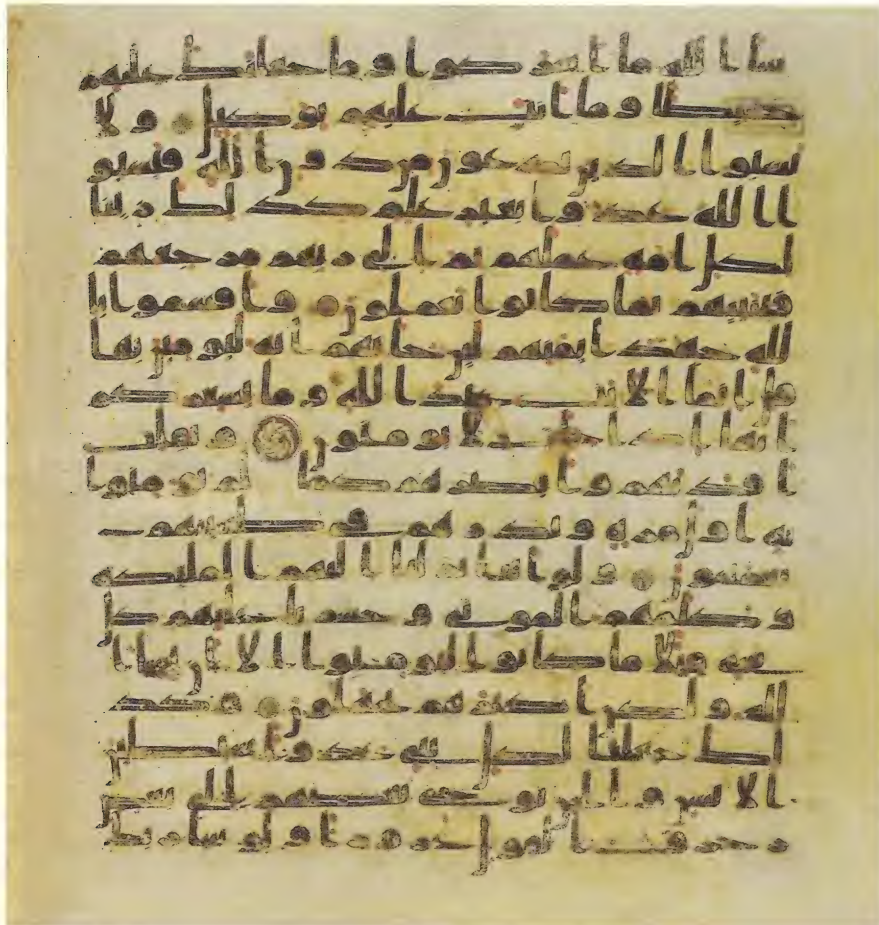 شا الله ما اشركوا وما جعلنك عليهم
حفيظا وما انت عليهم بوكيل ولا
تسبوا الذين يدعون من دون الله فيسبو
ا الله عدوا بغير علم كذلك زينا
لكل امه عملهم ثم الى ربهم مرجعهم
فينبيهم بما كانوا يعملون واقسموا با
لله جهد ايمنهم لين جاتهم ايه ليومنن بها
قل انما الايت عند الله وما يشعركم
انها اذا جات لا يومنون ونقلب
افدتهم وابصرهم كما لم يومنوا
به اول مره ونذرهم في طغينهم
يعمهون ولو اننا نزلنا اليهم المليكه
وكلمهم الموتى وحشرنا عليهم كل
شي قبلا ما كانوا ليومنوا الا ان يشا
الله ولكن اكثرهم يجهلون وكذ
لك جعلنا لكل نبي عدوا شيطين
الانس والجن يوحي بعضهم الى بعض
زخرف القول غرورا ولو شا ربك